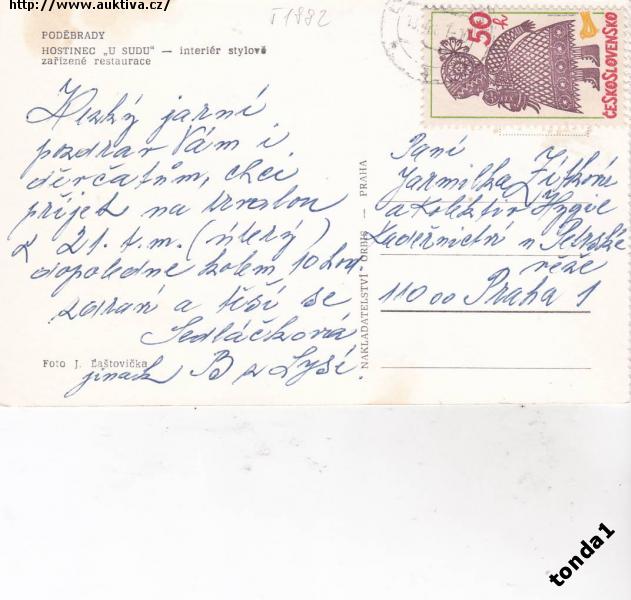 http://www.auktiva.cz/
T1882
PODĚBRADY
HOSTINEC „U SUDU" — interiér stylově
zařízené restaurace
50 h
ČESKOSLOVENSKO
Hezký jarní
pozdrav Vám i
děvčatům, chci
přijet na trvalou
21. t.m. (úterý)
dopoledne kolem 10 hod.
zdraví a těší se
Sedláčková
jinak B z Lysé.
Foto J. Laštovička
NAKLADATELSTVÍ ORBIS — PRAHA
Paní
Jarmilka Zítková
a Kolektiv
Kadeřnictví u Petrské
věže
110 00 Praha 1
tonda1